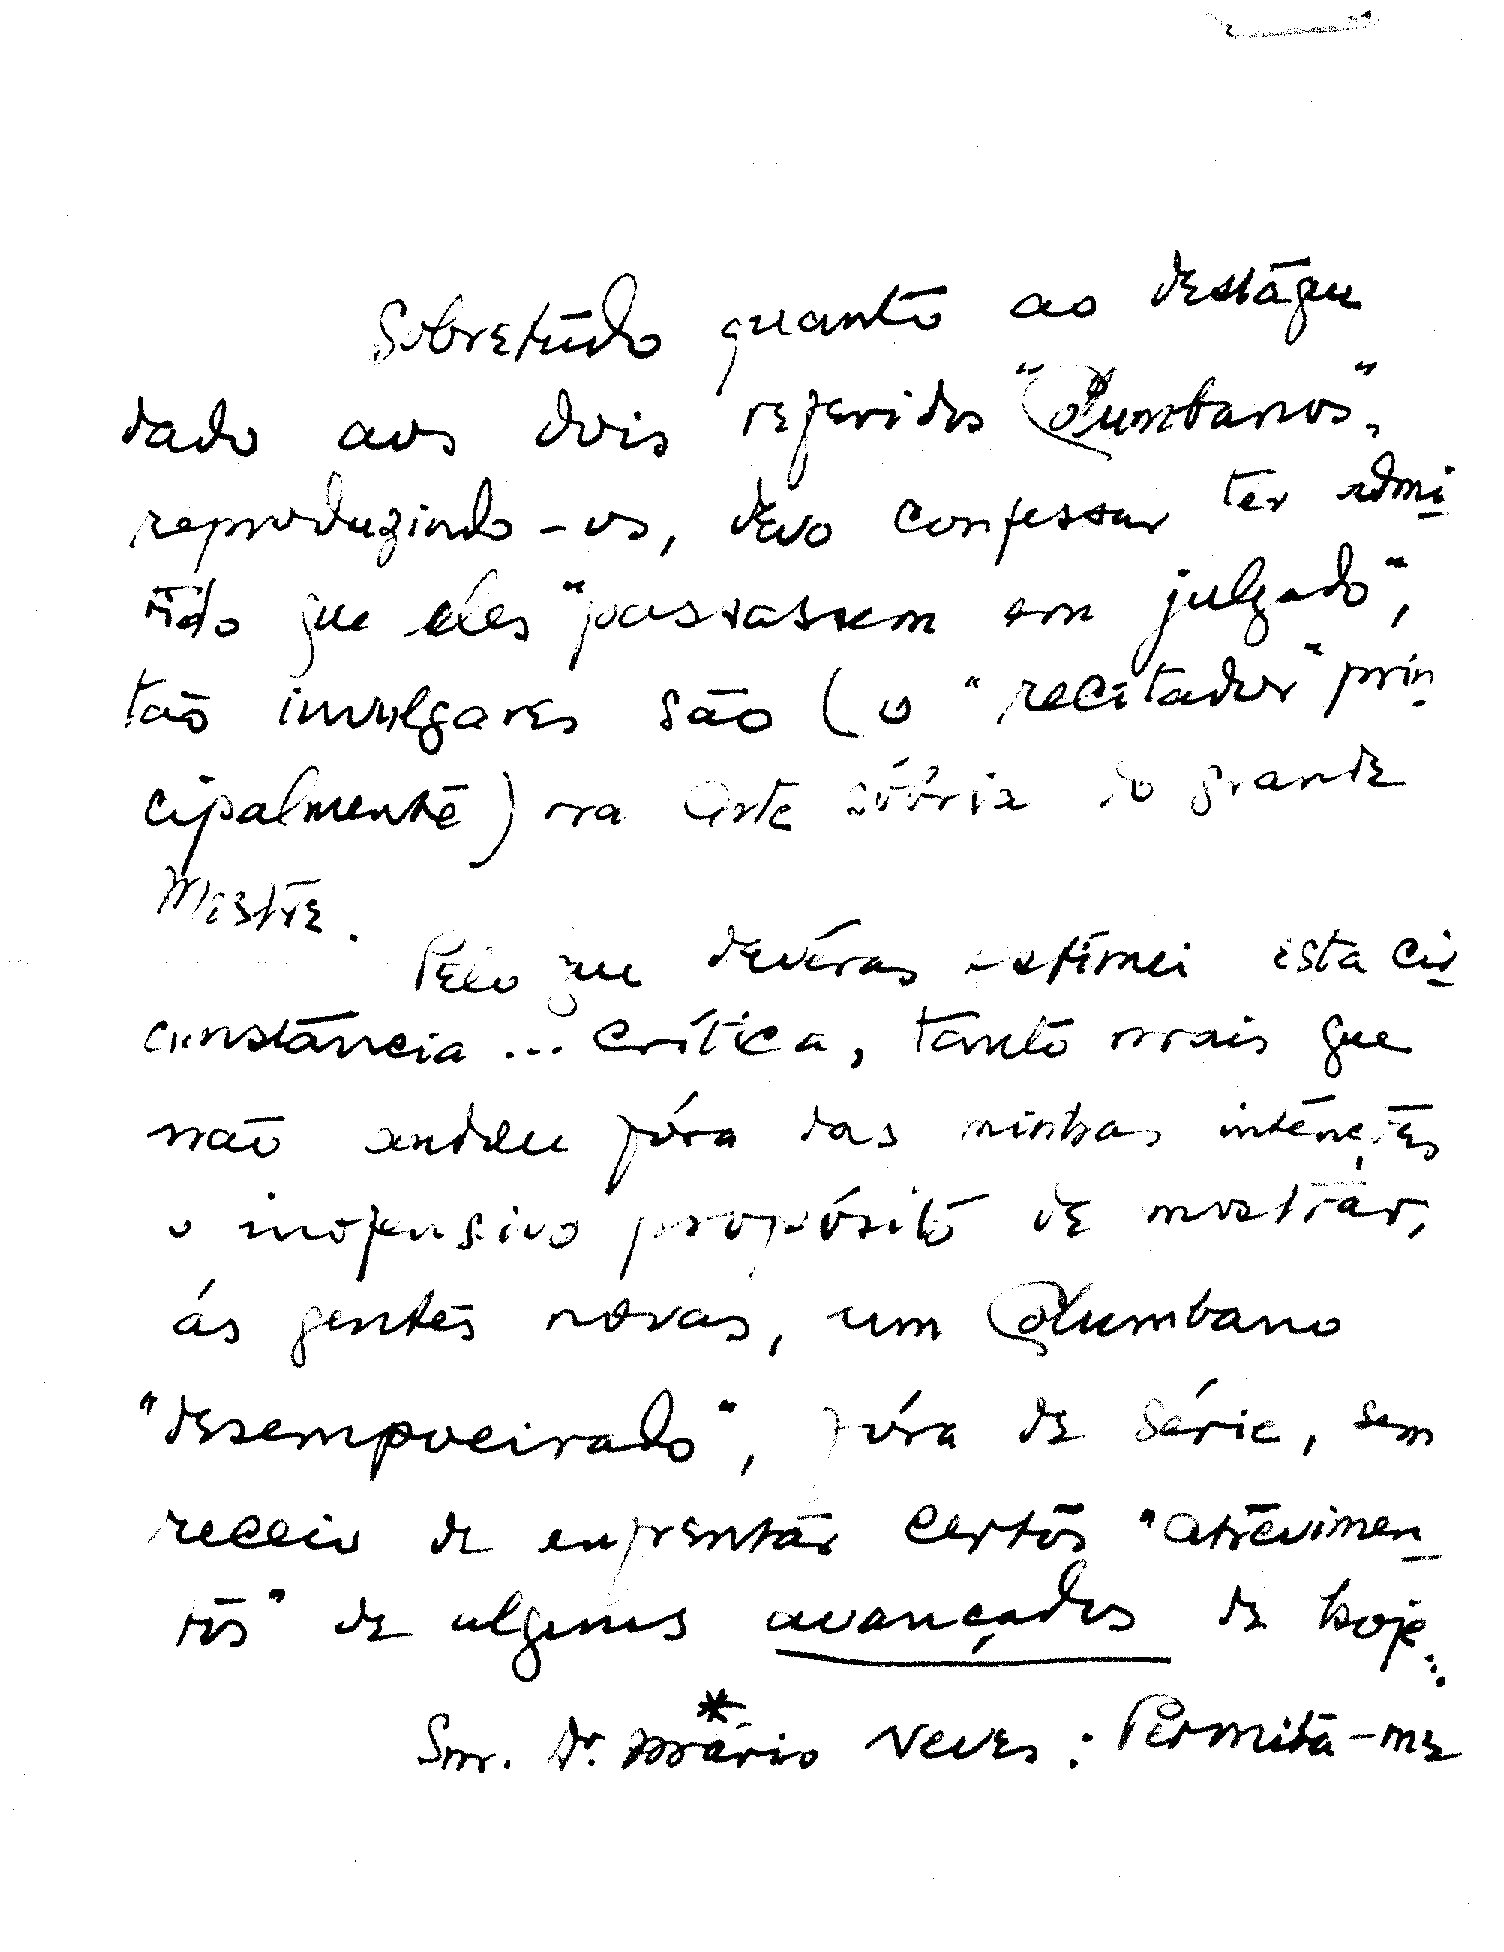 Sobretudo quanto ao destáque
dado aos dois referidos "Columbanos",
reproduzindo-os, devo confessar ter admi-
tido que eles "passassem em julgado",
tão invulgares são (o "recitador" prin-
cipalmente) na Arte sóbria do grande
Mestre.
Pelo que devéras estimei esta cir-
cunstância... crítica, tanto mais que
não andou fóra das minhas intenções
o inofensivo propósito de mostrar,
ás gentes novas, um Columbano
"desempoeirado", fóra de série, sem
receio de enfrentar certos "atrevimen-
tos" de alguns avançados de hoje...
*
Snr. Dr. Mário Neves: Permita-me